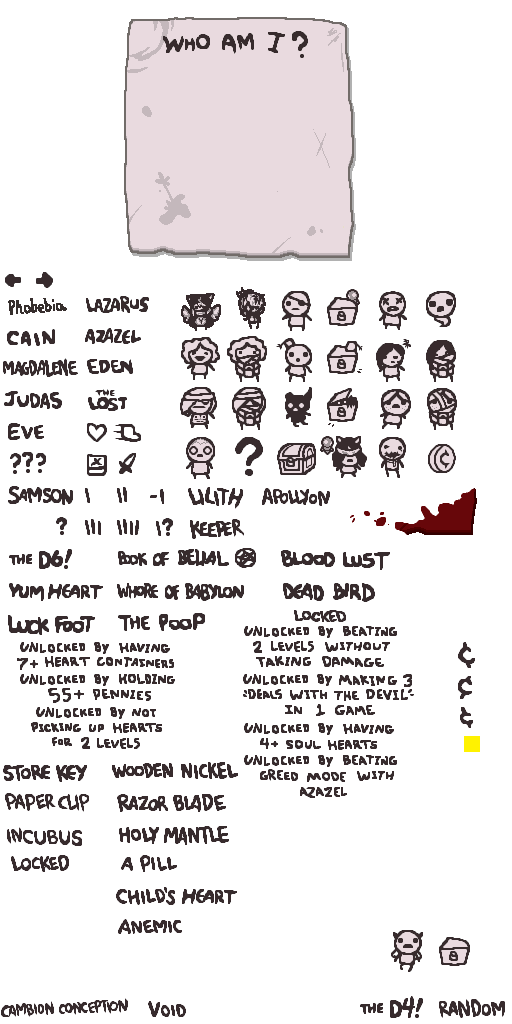 WHO AM I?
Phobebia LAZARUS
CAIN AZAZEL
MAGDALENE EDEN
JUDAS THE LOST
EVE
??? ?
SAMSON I II -1 LILITH APOLLYON
? III IIII 1? KEEPER
THE D6! BOOK OF BELIAL BLOOD LUST
YUM HEART WHORE OF BABYLON DEAD BIRD
LUCK FOOT THE POOP
LOCKED
UNLOCKED BY HAVING
7+ HEART CONTAINERS
UNLOCKED BY HOLDING
55+ PENNIES
UNLOCKED BY NOT
PICKING UP HEARTS
FOR 2 LEVELS
UNLOCKED BY BEATING
2 LEVELS WITHOUT
TAKING DAMAGE
UNLOCKED BY MAKING 3
"DEALS WITH THE DEVIL"
IN 1 GAME
UNLOCKED BY HAVING
4+ SOUL HEARTS
UNLOCKED BY BEATING
GREED MODE WITH
AZAZEL
¢
¢
¢
STORE KEY WOODEN NICKEL
PAPER CLIP RAZOR BLADE
INCUBUS HOLY MANTLE
LOCKED A PILL
CHILD'S HEART
ANEMIC
CAMBION CONCEPTION VOID THE D4! RANDOM